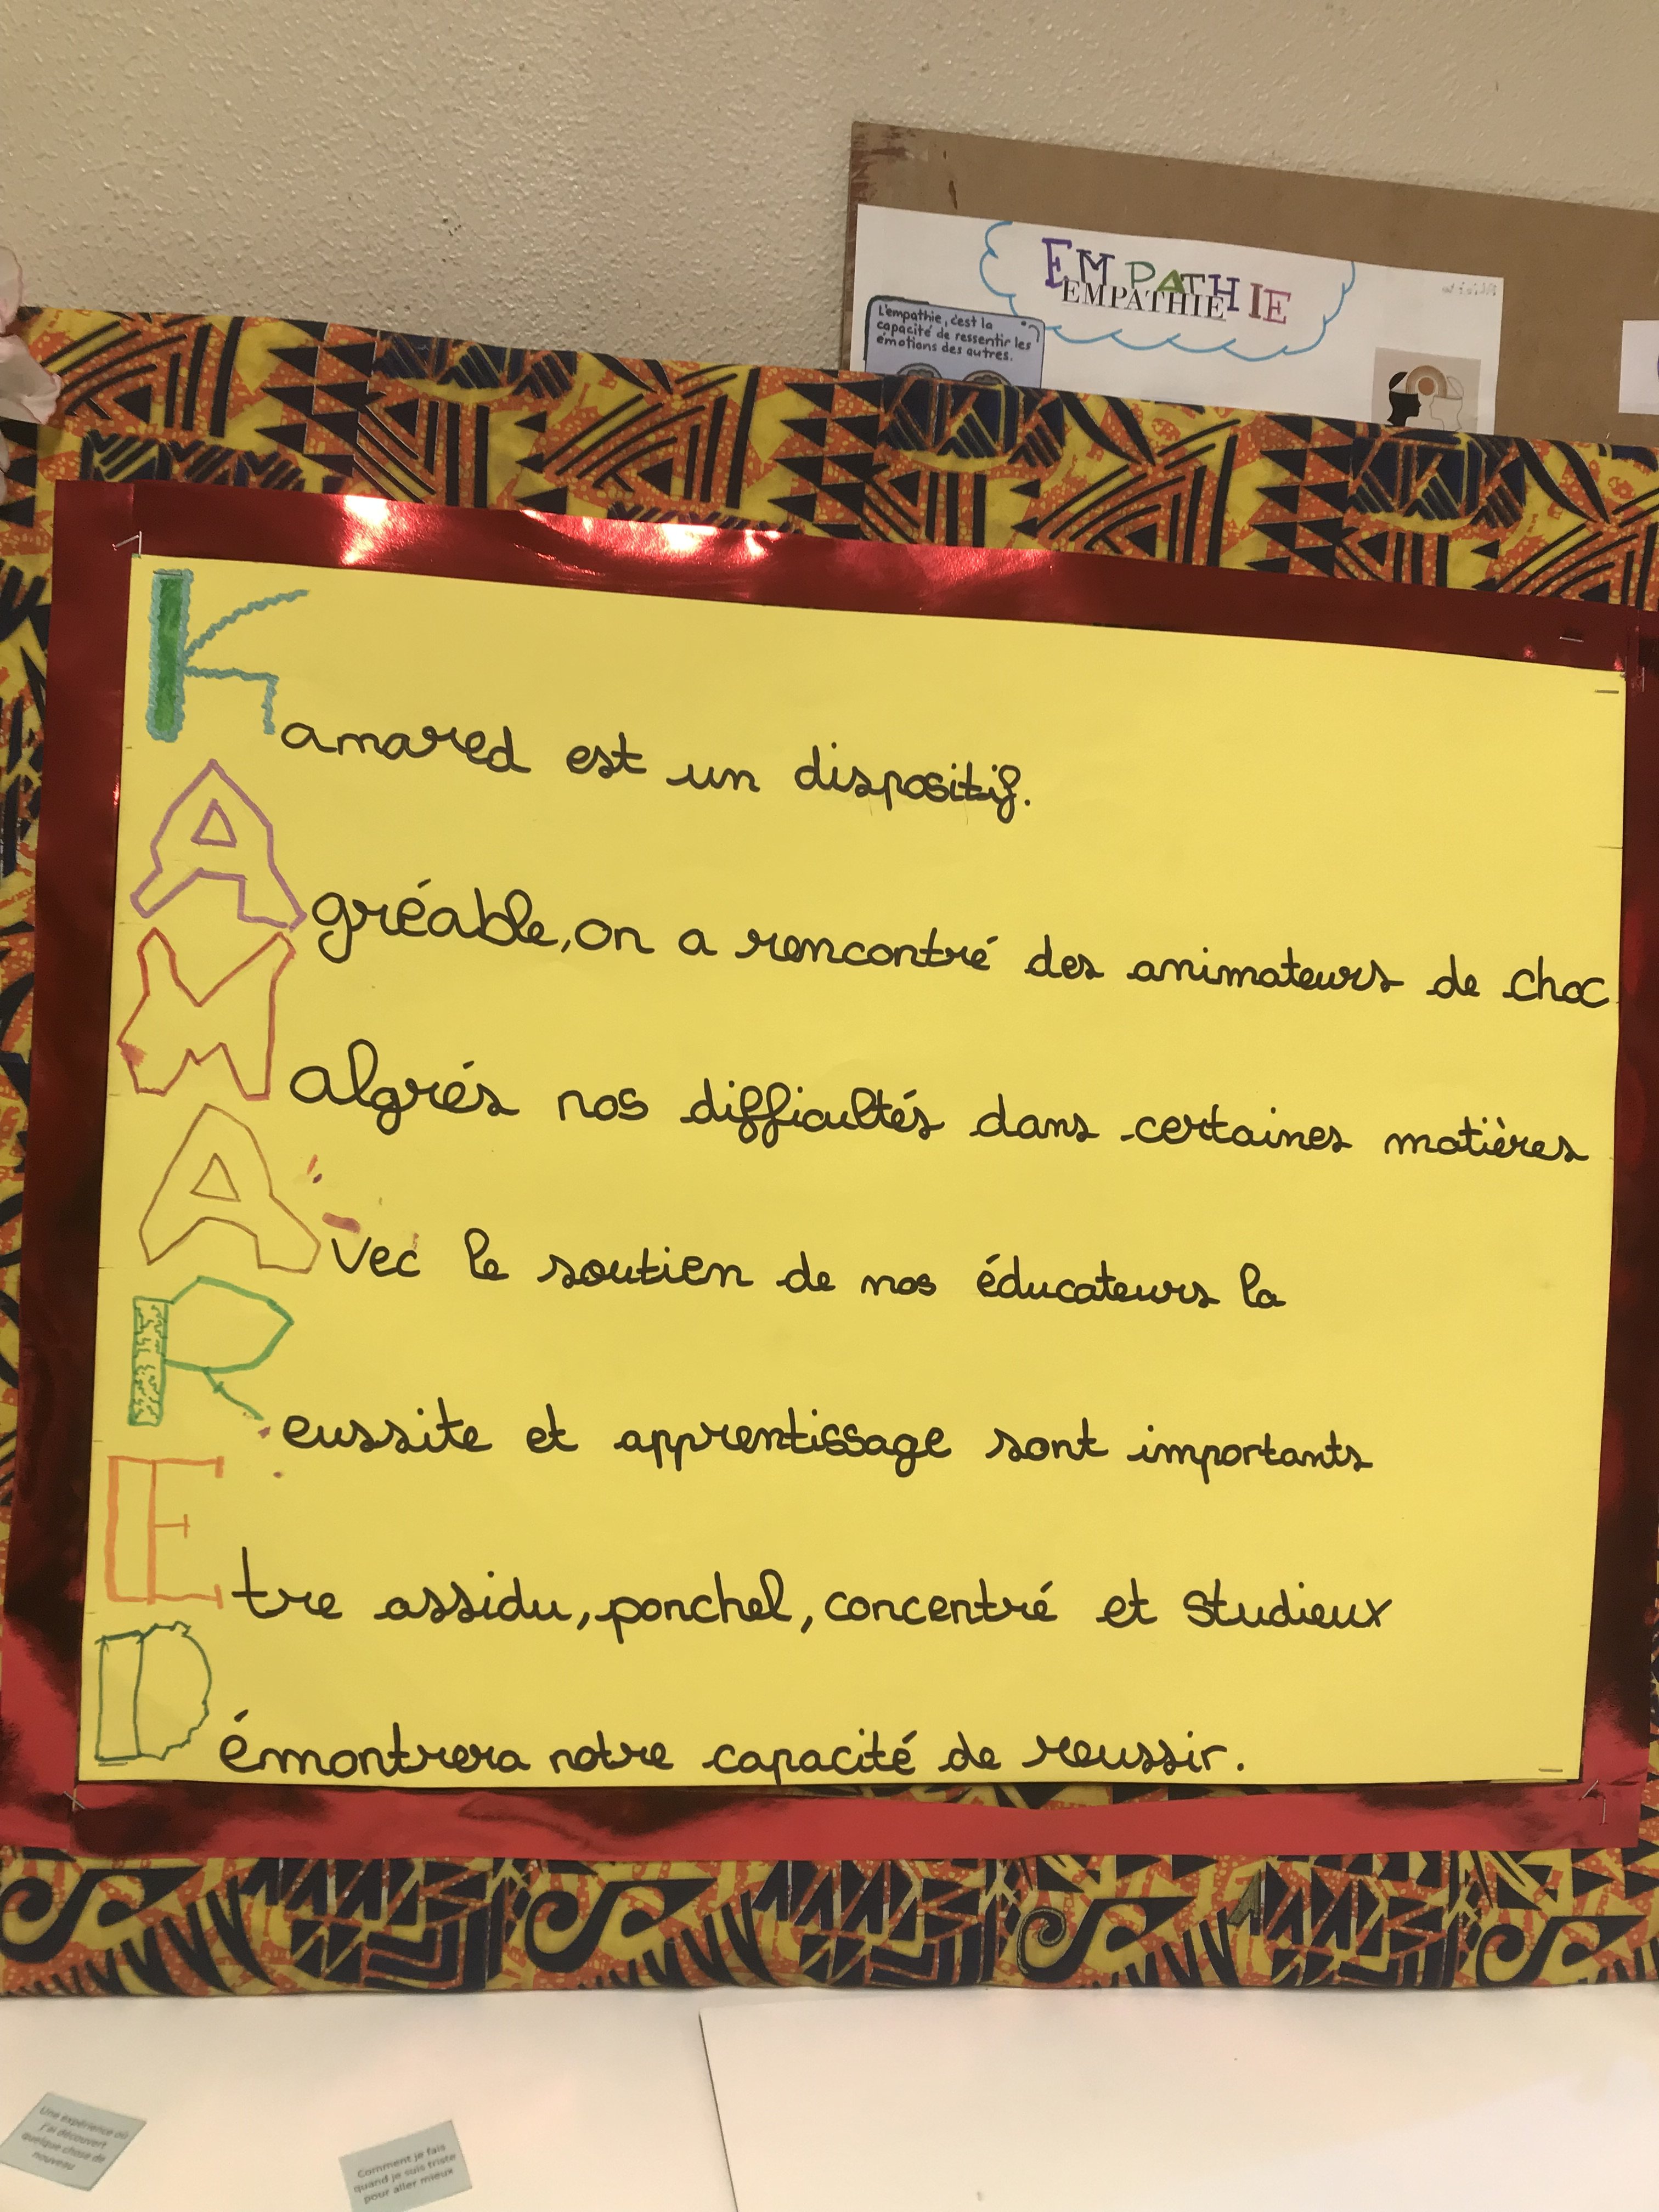 EMPATHIE
EMPATHIE
L'empathie, c'est la
capacité de ressentir les
émotions des autres.
Kamared est un dispositif.
Agréable, on a rencontré des animateurs de choc
Malgrés nos difficultés dans certaines matières
Avec le soutien de nos éducateurs la
Reussite et apprentissage sont importants
Etre assidu, ponchel, concentré et studieux
Démontrera notre capacité de reussir.
Une expérience où
j'ai découvert
quelque chose de
nouveau
Comment je fais
quand je suis triste
pour aller mieux